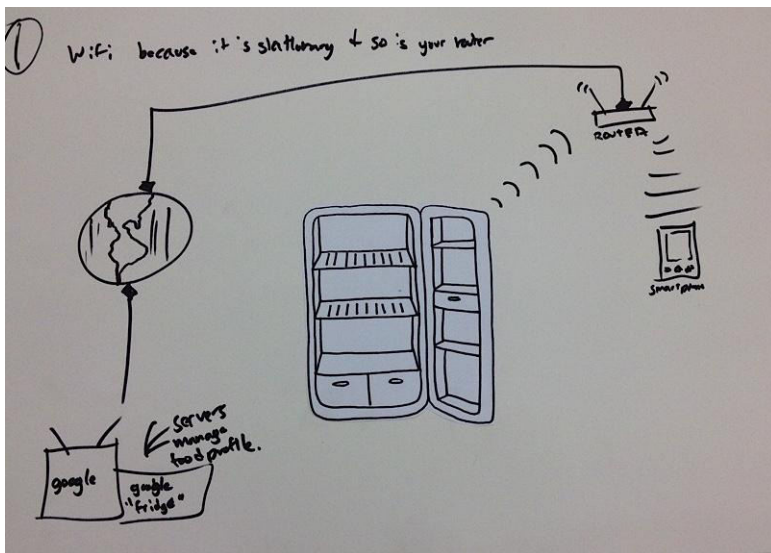 1 WiFi because it's stationary & so is your router
ROUTER
smartphone
servers
manage
food profile.
google
google
"fridge"